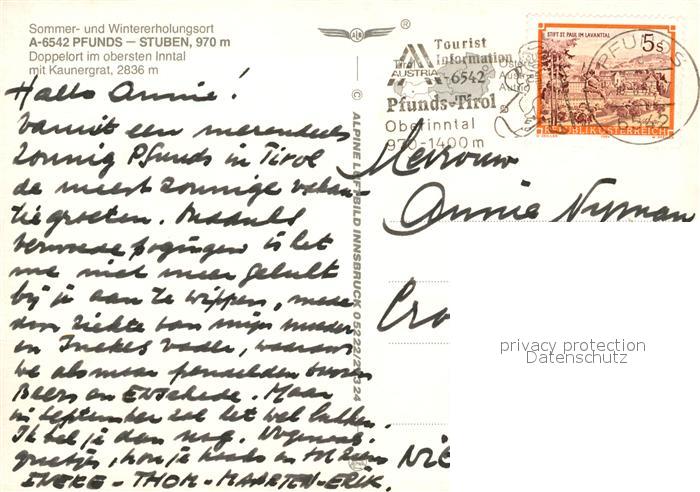 Sommer- und Wintererholungsort
A-6542 PFUNDS — STUBEN, 970 m
Doppelort im obersten Inntal
mit Kaunergrat, 2836 m
®
© ALPINE LUFTBILD INNSBRUCK 05222/2
Tourist
Information
AUSTRIA A-6542
Pfunds-Tirol
Oberinntal
970-1400 m
STIFT ST. PAUL IM LAVANTTAL
5s
REPUBLIK ÖSTERREICH
PFUNDS
Hallo Annie!
Vanuit een
zonnig Pfunds in Tirol
de meest zonnige vakan-
tiegroeten. Ondanks
verwoede pogingen is het
me niet meer gelukt
bij je aan te wippen, mede
door ziekte van mijn moeder
en Inekes vader, waarom
we alsmaar pendelden tussen
Beers en Enschede. Maar
in september zal het wel lukken.
Ik bel je dan nog. Nogmaals
groetjes,
INEKE - THOM - MAARTEN - ERIK.
Mevrouw
Annie Nyman
Cro
NIE
privacy protection
Datenschutz